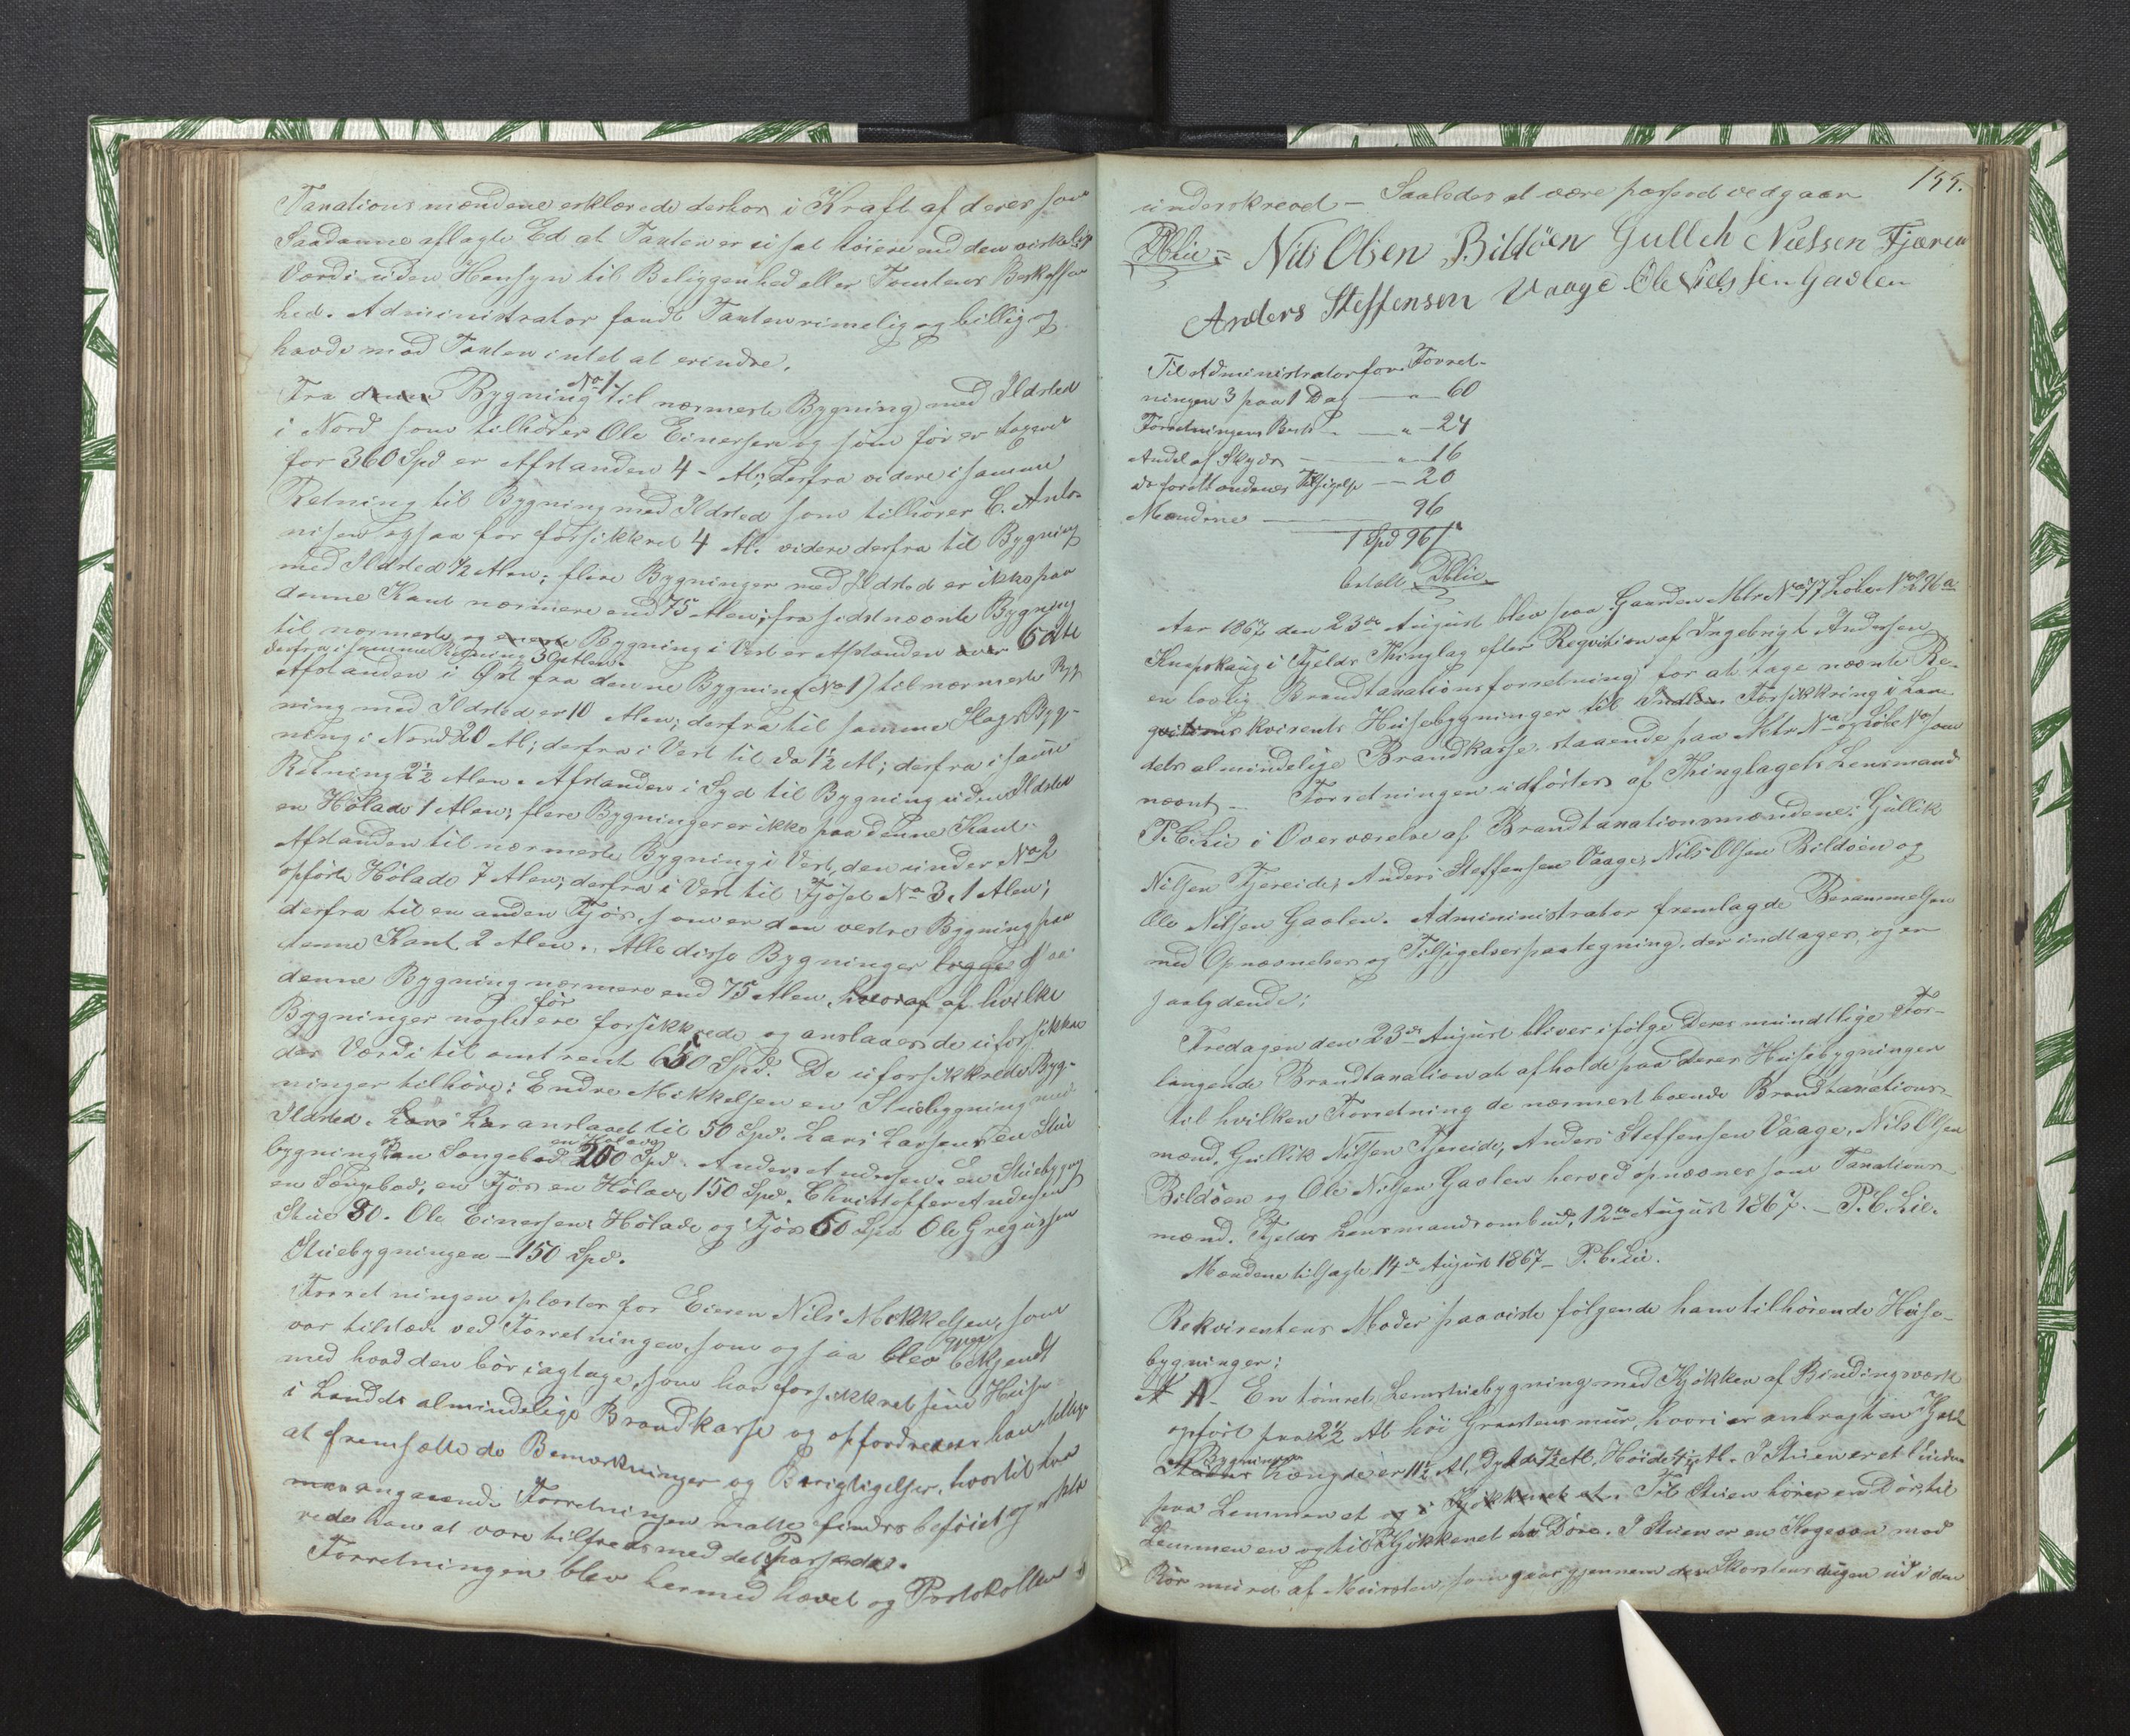 Taxationsmændene erklærede derhos i Kraft af deres som
Saadanne aflagte Ed at Taxten er ei sat høiere end den virkelige
Værdi uden Hensyn til Beliggenhed eller Tomtens Beskaffen
hed. Administrator fandt Taxten rimelig og billig og
havde mod Taxten intet at erindre.
Fra denne Bygning No 1 til nærmeste Bygning med Ildsted
i Nord som tilhører Ole Einersen og som før er taxeret
for 360 Spd er Afstanden 4 - Al; derfra videre i samme
Retning til Bygning med Ildsted som tilhører C. Anto-
nisen ogsaa før forsikkret 4 Al. videre derfra til Bygning
med Ildsted ½ Alen; flere Bygninger med Ildsted er ikke paa
denne Kant nærmere end 75 Alen; fra sidstnævnte Bygning
til nærmeste og eneste Bygning i Vest er Afstanden over 6 Al
derfra i samme Retning 30 Alen.
Afstanden i Øst fra denne Bygning (No 1) til nærmeste Byg
ning med Ildsted er 10 Alen; derfra til samme Slags Byg-
ning i Nord 20 Al; derfra i Vest til do 1½ Al; derfra i samme
Retning 2½ Alen. Afstanden i Syd til Bygning uden Ildsted
en Hølade 1 Alen; flere Bygninger er ikke paa denne Kant.
Afstanden til nærmeste Bygning i Vest, den under No 2
opførte Hølade 7 Alen; derfra i Vest til Fjøset No 3, 1 Alen;
derfra til en anden Fjøs, som er den vestre Bygning paa
denne Kant 2 Alen. Alle disse Bygninger ligger paa
denne Bygning nærmere end 75 Alen, hvoraf af hvilke
Bygninger nogle ere før forsikkrede og anslaaes de uforsikkre
des Værdi til omtrent 650 Spd. De uforsikkrede Byg-
ninger tilhøre: Endre Mikkelsen en Stuebygning med
Ildsted. Lars har anslaaet til 50 Spd. Lars Larsens en Stue
bygning og en Sengebod en Hølade 200 Spd. Anders Andersen. en Stuebygng
en Sengebod, en Fjøs en Hølade 150 Spd. Christoffer Andersens
Stue 30. Ole Einersens Hølade og Fjøs 60 Spd Ole Gregussen
Stuebygningen - 150 Spd.
Forretningen oplæstes for Eieren Nils Mikkelsen, som
var tilstæde ved Forretningen, som ogsaa blev bekjendt
med hvad den bør iagttage, som har forsikkret sine Huse
i Landets almindelige Brandkasse og opfordredes han tillige
at fremsætte de Bemærkninger og Berigtigelser, hvortil han
man angaaende Forretningen maatte findes beføiet og erklæ
rede han at være tilfreds med det Passerede.
Forretningen blev hermed hævet og Protokollen
155.
underskrevet - Saaledes at være passeret vedgaaes
PbLie = Nils Olsen Bildöen Gullek Nielsen Fjæreid
Anders Steffensen Vaage Ole Nielssen Gaslen
Til Administrator for Forret-
ningen 3 paa 1 Dag — " — 60
Forretningens Besk — " — 24
Andel af Skyds — " — 16
do for Mændenes Tilsigelse — 20
Mændene — 96
1 Spd 96 s
betalt PbLie
Aar 1867 den 23de August blev paa Gaarden Mtr No 77 Løbe No 296 a
Knapskaug i Fjelds Thinglag efter Reqvisition af Ingebrigt Andersen
en lovlig Brandtaxationsforretning for at tage nævnte Re-
qvitions kvirents Husebygninger til Indtæn Forsikkring i Lan
dets almindelige Brandkasse, staaende paa Mtr No og Løbe No som
nævnt - Forretningen udførtes af Thinglagets Lensmand
P. C. Lie i Overværelse af Brandtaxationsmændene: Gullik
Nilsen Fjereide, Anders Steffensen Vaage, Nils Olsen Bildöen og
Ole Nilsen Gaslen. Administrator fremlagde Berammelsen
med Opnævnelses og Tilsigelsespaategning, der indtages, og er
saalydende:
Fredagen den 23de August bliver ifølge Deres mundtlige For-
langende Brandtaxation at afholde paa Deres Husebygninger
til hvilken Forretning de nærmest boende Brandtaxations-
mænd, Gullik Nilsen Fjereide, Anders Steffensen Vaage, Nils Olsen
Bildöen og Ole Nilsen Gaslen herved opnævnes som Taxations
mænd. Fjelds Lensmandsombud, 12te August 1867. - P. C. Lie.
Mændene tilsagte 14de August 1867 - P. C. Lie.
Rekvirentens Moder paaviste følgende ham tilhørende Huse-
bygninger:
A - En tømret Lemstuebygning med Kjøkken af Bindingsværk
opført paa 2½ Al høi Graastensmur, hvori er anbragt en Kjel
Stuens Bygningens Længde er 11½ Al, Dybde 7½ Al, Høide 4½ Al. I Stuen er et Vindu
paa Lemmen et og i Kjøkkenet et. Til Stuen hører en Dør, til
Lemmen en og til Kjøkkenet to Døre. I Stuen er en Kogeovn med
Rør muret af Mursten, som gaar gjennem den Skorstens ud i den